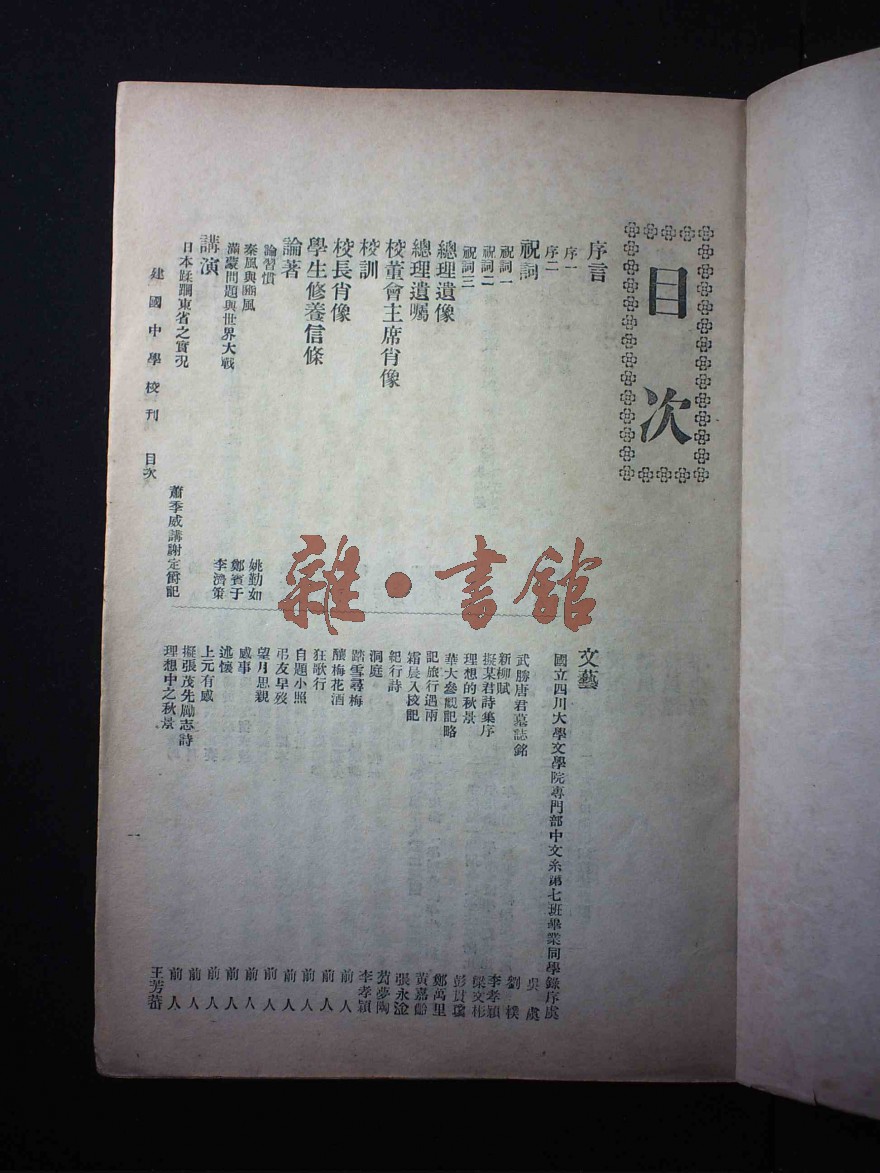 目次
序言
序一
序二
祝詞
祝詞一
祝詞二
祝詞三
總理遺像
總理遺囑
校董會主席肖像
校訓
校長肖像
學生修養信條
論著
論習慣 姚勤如
秦風與豳風 鄭賓于
滿蒙問題與世界大戰 李濟策
講演
日本蹂躪東省之實況 蕭季威講謝定爵記
建國中學校刊 目次
文藝
國立四川大學文學院專門部中文系第七班畢業同學錄序 吳虞
武勝唐君墓誌銘 吳虞
新柳賦 劉樸
擬某君詩集序 李孝穎
理想的秋景 梁文彬
華大參觀記略 彭貫璣
記旅行遇雨 鄭萬里
霜晨入校記 黃嘉齡
紀行詩 張永淦
洞庭 荀夢陶
踏雪尋梅 李孝穎
釀梅花酒 前人
狂歌行 前人
自題小照 前人
弔友早歿 前人
望月思親 前人
感事 前人
述懷 前人
上元有感 前人
擬張茂先勵志詩 前人
理想中之秋景 王芳蕃
一
雜·書館